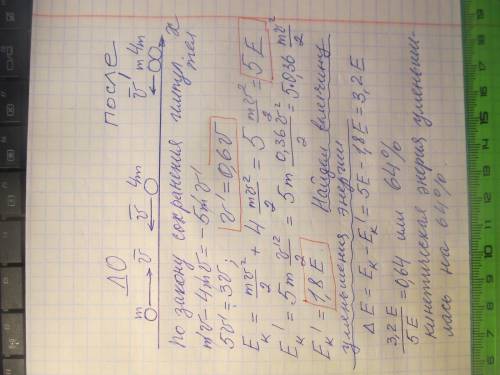 До после
m v̄ v̄ 4m v̄' m 4m x
по закону сохранения импул. тел
mv-4mv=-5mv'
5v'=3v; v'=0,6v
Eк = mv²/2 + 4 mv²/2 = 5 mv²/2 = 5E
Eк' = 5m v'²/2 = 5m 0,36v²/2 = 5·0,36 mv²/2
Eк' = 1,8E Найдем величину
уменьшения энергии
ΔE = Eк - Eк' = 5E - 1,8E = 3,2E
3,2E/5E = 0,64 или 64%
кинетическая энергия уменьши-
лась на 64%.